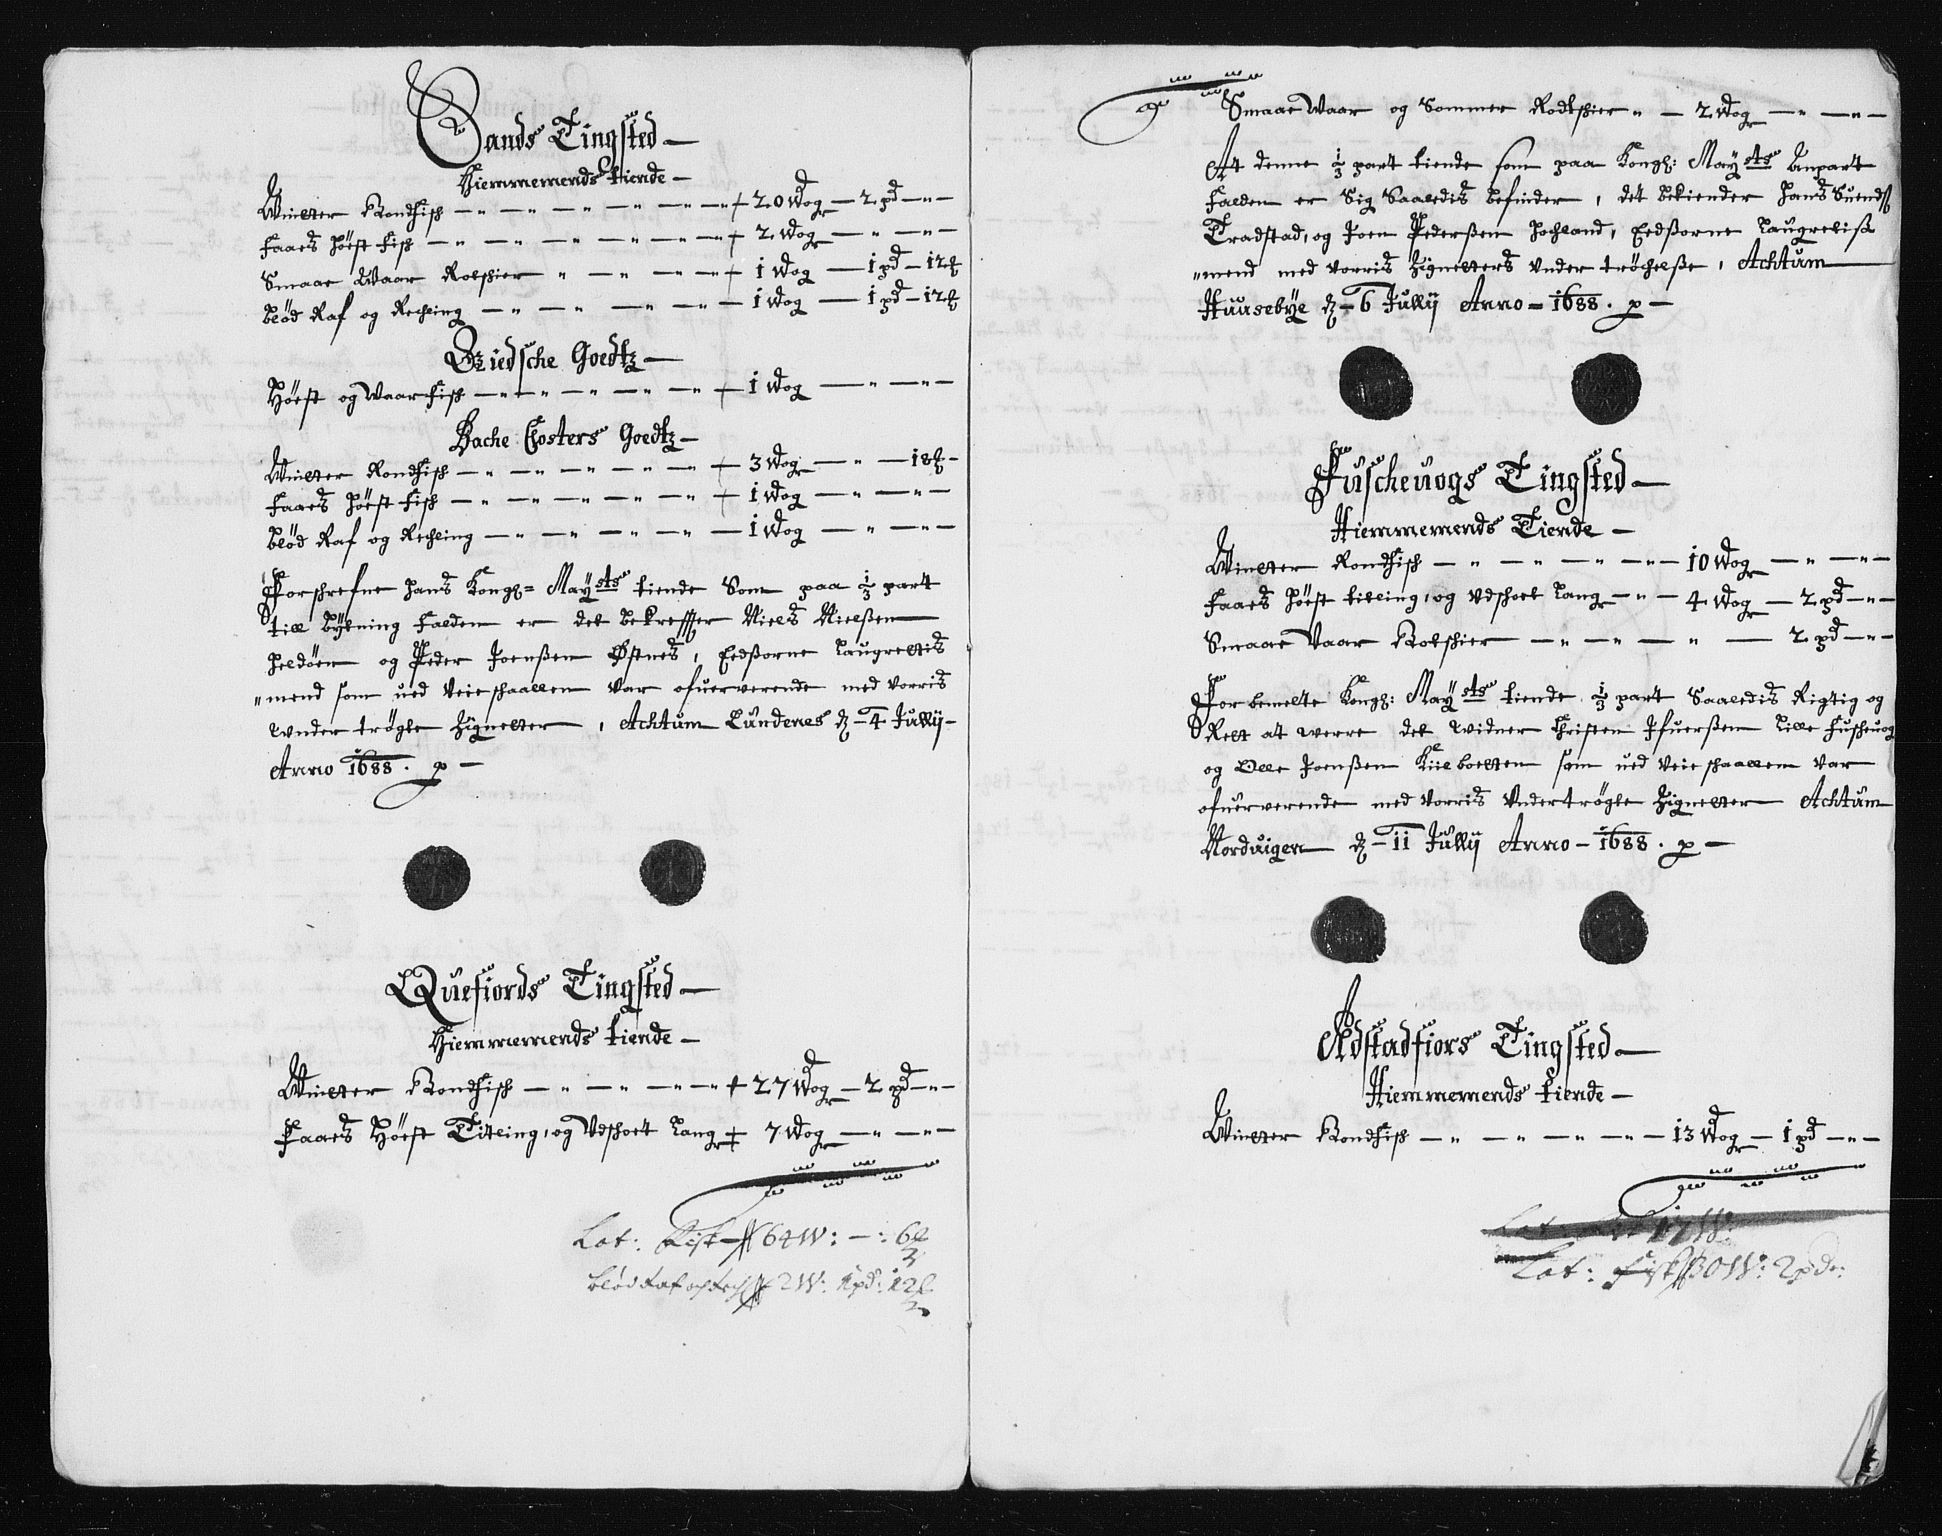 Sands Tingsted
Hiemmemends tiende
Winter Rondfisk 20 Wog 2 pd
Faaes Höest fisk 2 Wog
Smaae Waar Rotskier 1 Wog 1 pd 12
Blöd Raf og Rechling 1 Wog 1 pd 12
Giedsche Goedtz
Höest og Waar fisk 1 Wog
Bache Closters Goedtz
Winter Rondfisk 3 Wog 18
Faaes Höest fisk 1 Wog
Blöd Raf og Rechling 1 Wog
Forschrefne Hans Kongl= Mayts tiende Som paa 1/3 part
till Bytning falden er det bekreffter Niels Nielßen
Heldöen og Peder Joenßen Östnes, Eedßorne Laugrettis
mend som ued Veie schaallen var ofuerverende med vorris
under trögte Zignetter, Achtum Lundenes d 4 Jullij
Anno 1688.
Quefiords Tingsted
Hiemmemends tiende
Winter Rondfisk 27 Wog 2 pd
Faaes Höest Titling, og Udschoet Lang 7 Wog
Lat: Fisk 64 W: 6
blöd Raf och Rech 2 W: 1 pd: 12
Smaae Waar og Sommer Rodtskier 2 Wog
At denne 1/3 part tiende som paa Kongl: Mayts Anpart
falden er Sig Saaledis befinder, det bekiender Hans Suends
Tradstad, og Joen Pederßen Hochland, Eedßorne Laugrettis
mend med vorris Zignetters under tröchelße, Achtum
Huusebye d 6 Jullij Anno 1688.
Fuscheuogs Tingsted
Hiemmemends Tiende
Winter Rondfisk 10 Wog
Faaes Höest titling, og Udschoet Lang 4 Wog 2 pd
Smaae Vaar Rotskier 2 pd
Forbemelte Kongl: Mayts tiende 1/3 part Saaledis Rigtig og
Rett at werre det widner Christen Ifuerßen Lille Fuscheuog
og Olle Joenßen Kiilbotten som ued Veie schaallen var
ofuerverende med vorris Undertrögte Zignetter Achtum
Norduigen d 11 Jullij Anno 1688.
Adstadfiors Tingsted
Hiemmemends tiende
Winter Rondfisk 13 Wog 1 pd
Lat: 17 W:
Lat: fisk 30 W: 2 pdr: